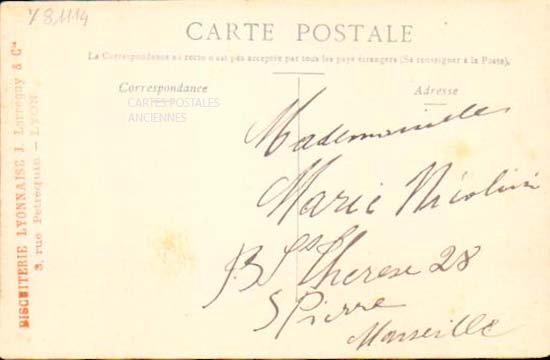 CARTE POSTALE
La Correspondance au recto n'est pas acceptée par tous les pays étrangers (Se renseigner à la Poste).
Correspondance
Adresse
CARTES POSTALES
ANCIENNES
Mademoiselle
Marie Nicolini
Bd Ste Therese 28
St Pierre
Marseille
BISCUITERIE LYONNAISE J. & Cie
3, rue Petrequin - LYON